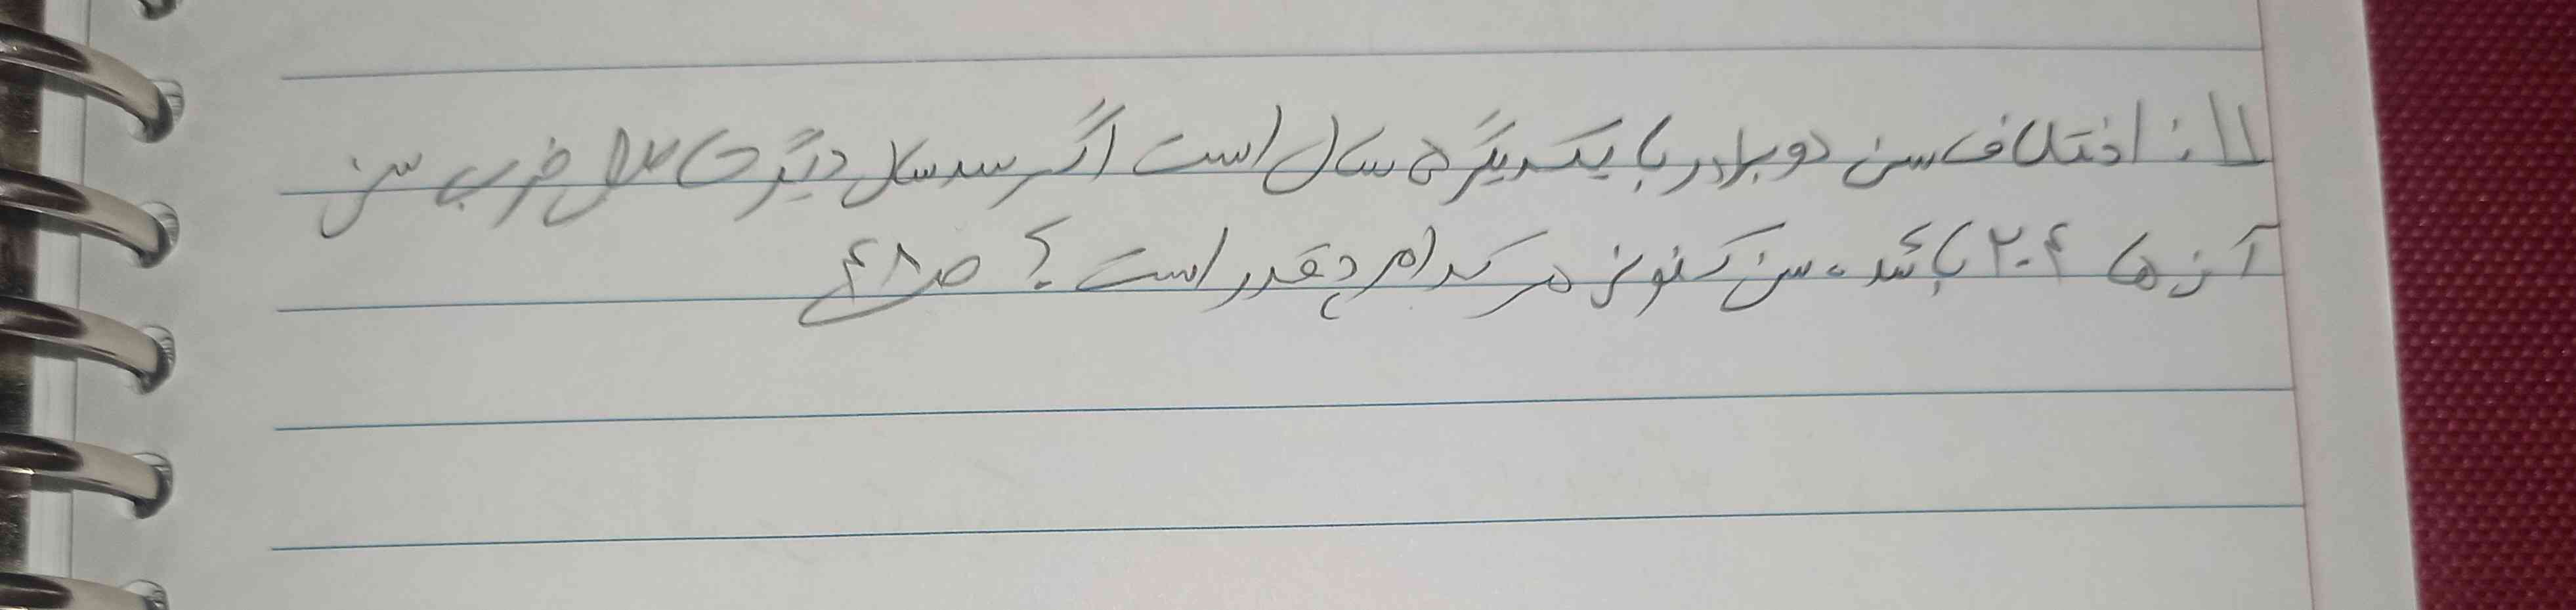 ۱۱: اختلاف سن دو برادر با یکدیگر ۵ سال است اگر سه سال دیگر حاصل ضرب سن
آن ها ۲۰۴ باشد، سن کنونی هر کدام چقدر است؟ ص ۴۸